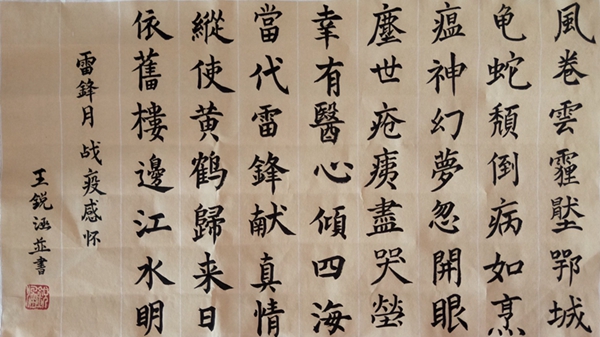 風卷雲霾壓鄂城
龟蛇頹倒病如烹
瘟神幻夢忽開眼
塵世疮痍盡哭塋
幸有醫心傾四海
當代雷鋒献真情
縱使黄鶴歸来日
依舊樓邊江水明
雷鋒月 战疫感怀
王銳涵並書